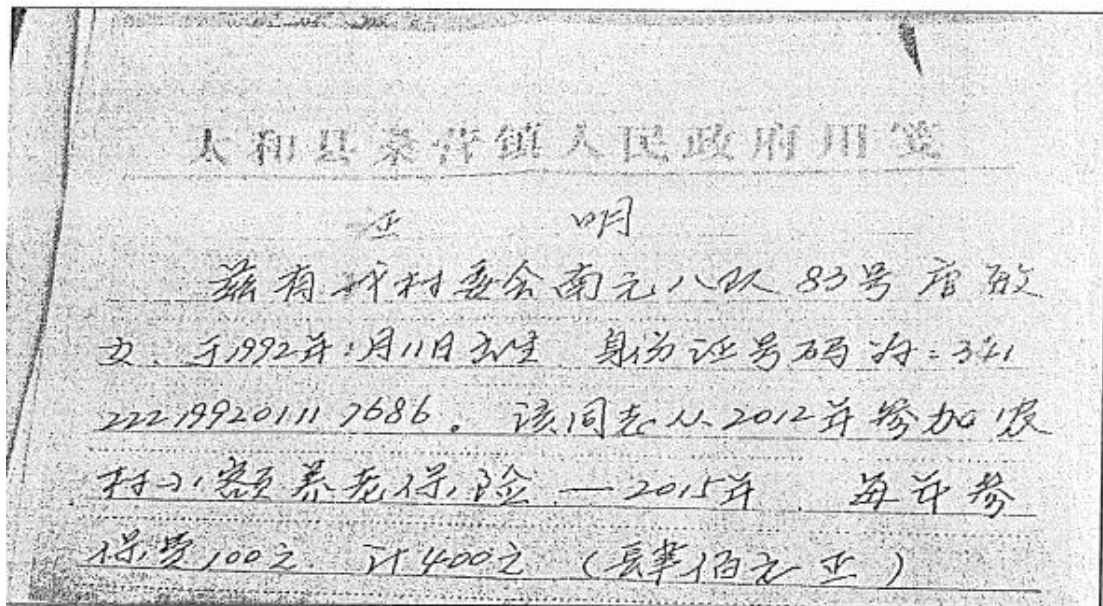 太和县桑营镇人民政府用笺
证 明
兹有我村委会南元八队 83号 唐敏
女、于1992年1月11日出生 身份证号码为:341
222199201117686。该同志从2012年参加农
村小额养老保险 — 2015年 每年参
保费100元 计400元 (肆佰元正)